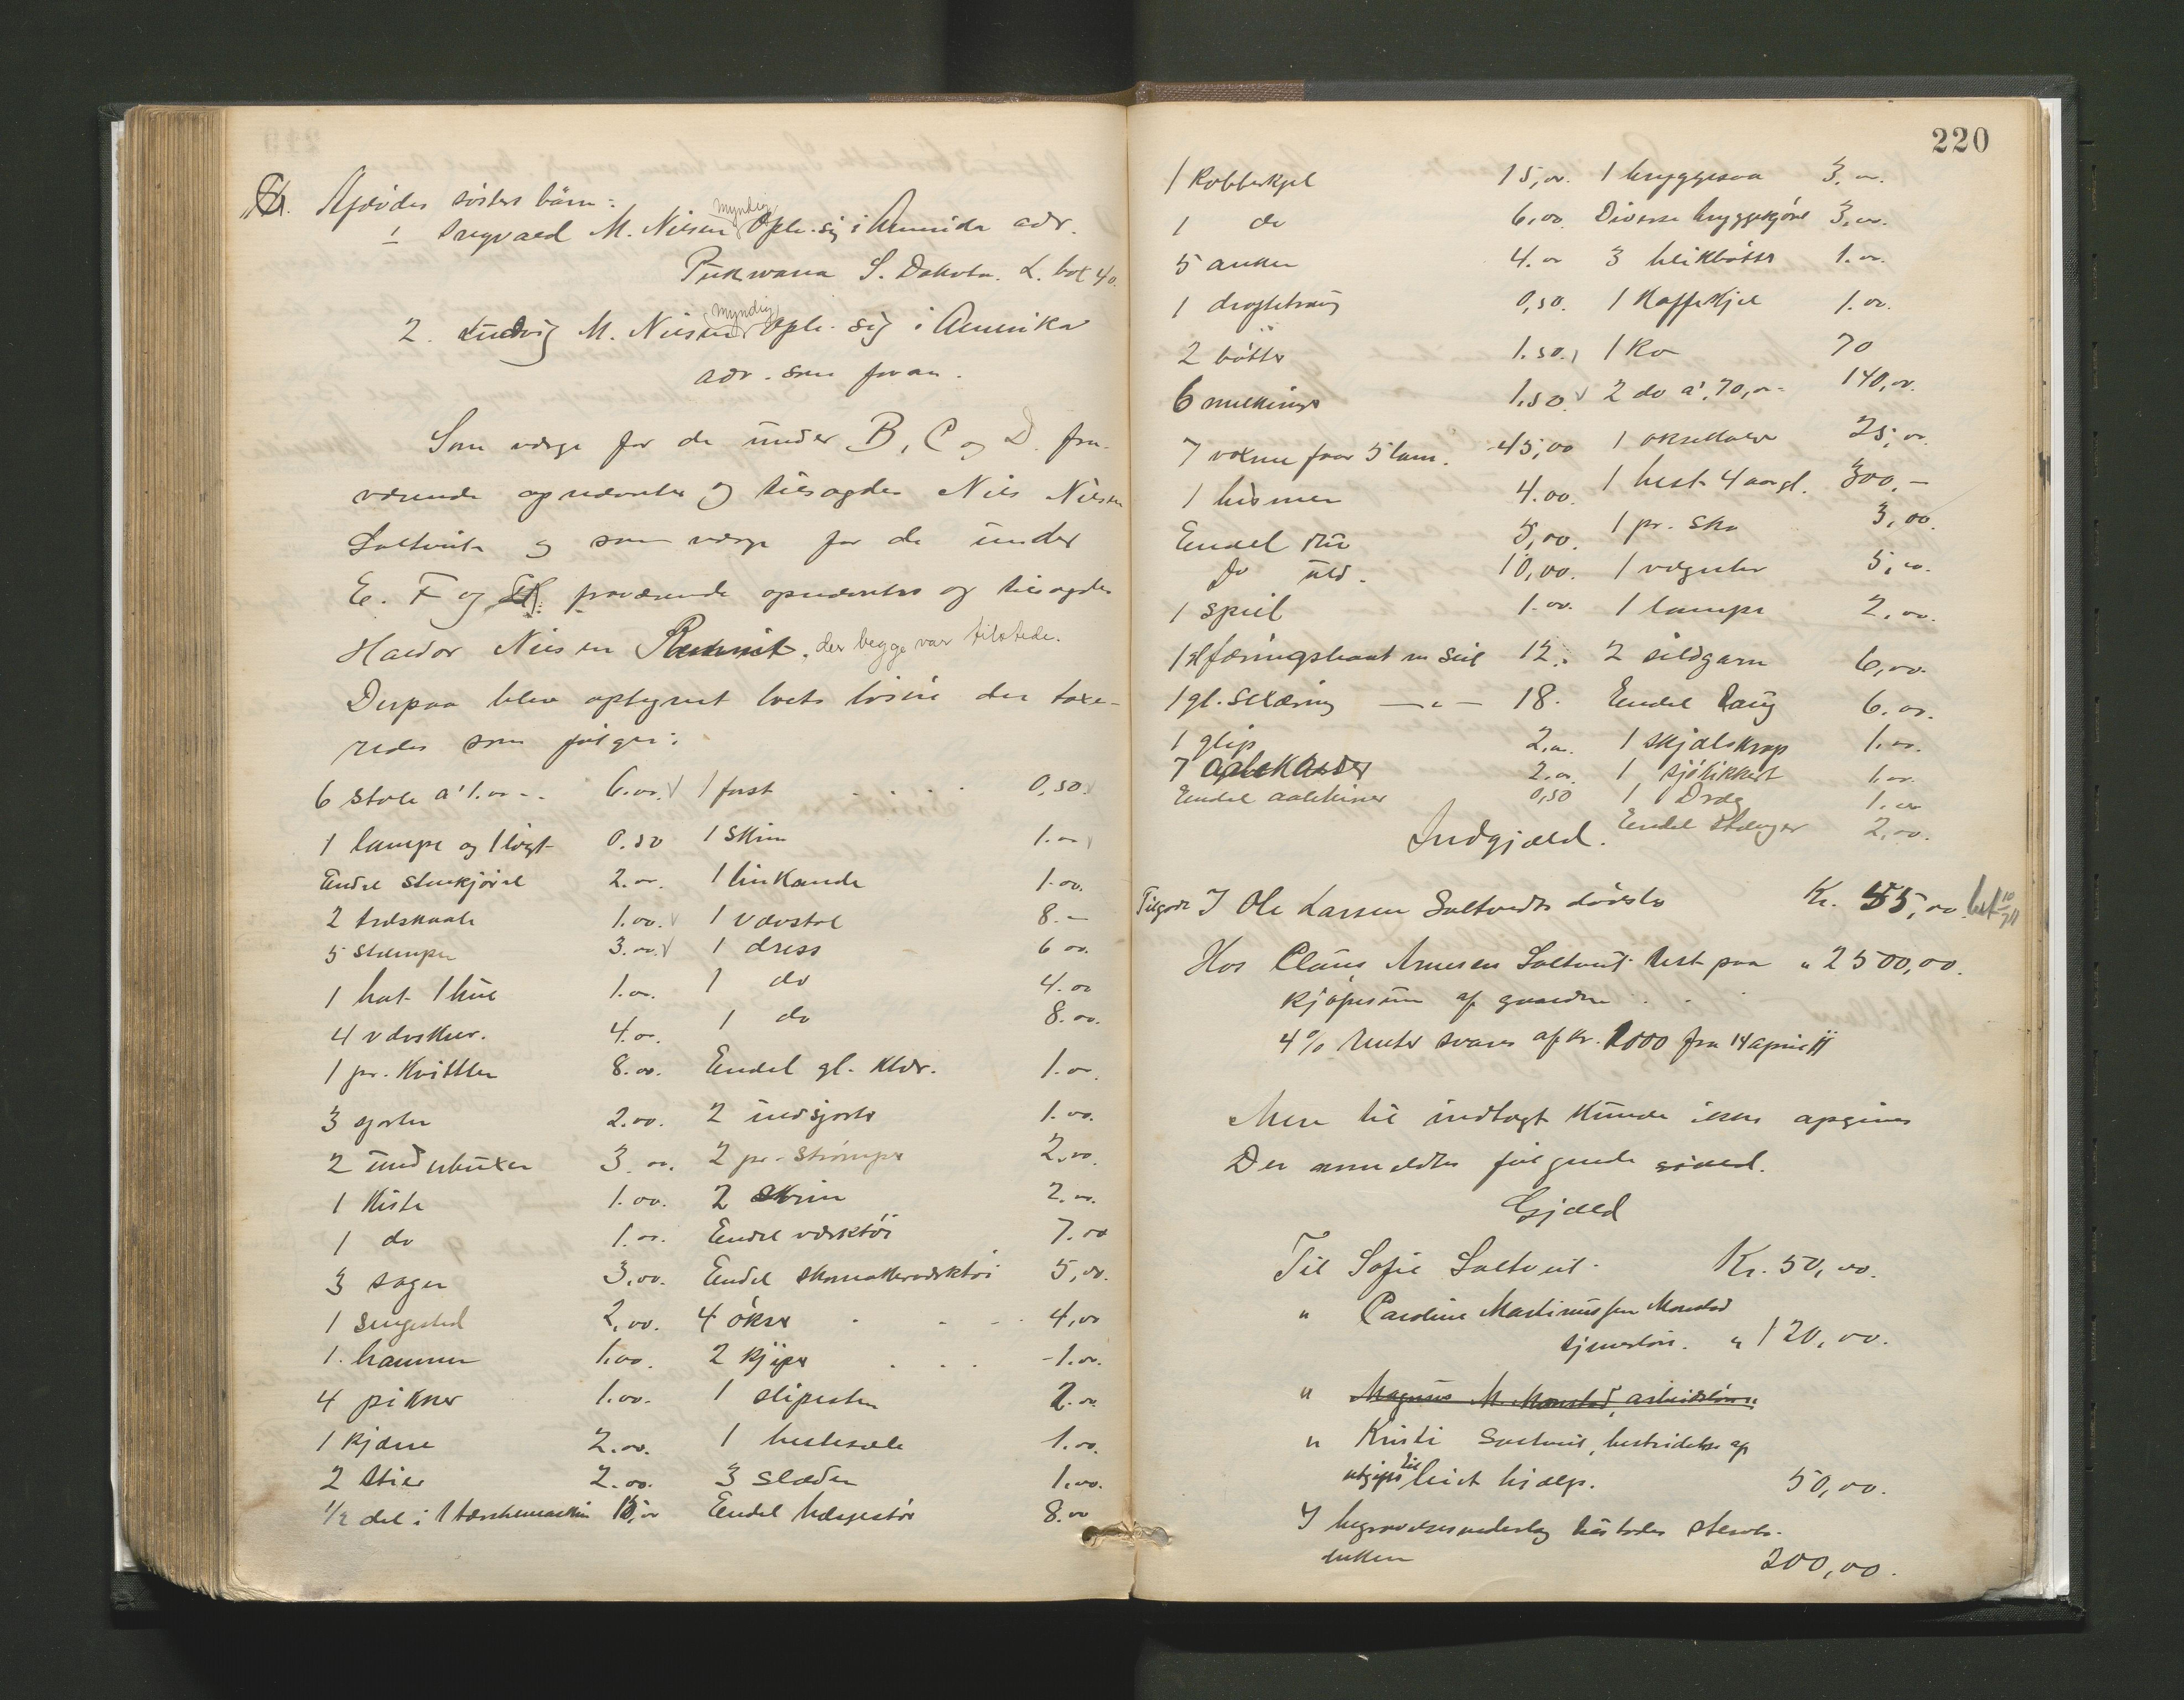 Afdødes søsters børn:
1 Sigvald M. Nilsen myndig opln. sig i Amerika adr.
Pukwana S. Dakota. L. box 40.
2. Ludvig M. Nilsen myndig opln. sig i Amerika
adr. som foran.
Som værge for de under B, C og D. fra-
værende opnævntes og tilsagdes Nils Nilsen
Saltveit og som værge for de under
E. F og fraværende opnævntes og tilsagdes
Haldor Nilsen der begge var tilstede.
Derpaa blev optegnet boets løsøre der taxe-
redes som følger:
6 stole a' 1.00 6.00 1 fust 0,50
1 lampe og 1 løgt 0.50 1 skrin 1.00
Endel stenkjørel 2.00. 1 linkande 1.00.
2 træskaale 1.00. 1 vævstol 8.-
5 stamper 3.00. 1 dress 6 00.
1 hat 1 hue 1.00. 1 do 4.00
4 vævskeer. 4.00. 1 do 8.00.
1 pr. Kvittler 8.00. Endel gl. klær. 1.00.
3 sjorter 2.00. 2 uldsjorter 1.00.
2 underbuxer 3.00. 2 pr. strømper 2,00.
1 Kiste 1.00. 2 skrin 2.00.
1 do 1.00. Endel værktøi 7.00
3 sager 3,00. Endel skomakerværktøi 5,00.
1 sengested 2,00. 4 økser 4,00
1. hammer 1.00. 2 kjiper 1.00.
4 pikker 1.00. 1 slipesten 2.00.
1 Kjærre 2.00. 1 hestesæle 1.00.
2 stier 2.00. 3 slæder 1.00.
1/2 del i 1 tærskemaskin 15,00 Endel hæsjestør 8.00
220
1 Kobberkjel 15,00. 1 bryggesaa 3,00.
1 do 6,00. Diverse bryggekjørel 3,00.
5 anker 4.00 3 blikbøtter 1.00.
1 0,50. 1 Kaffekjel 1.00.
2 bøtter 1.50. 1 Ko 70
6 melkeringer 1.50 2 do a' 70,00 140,00.
7 voxne faar 5 lam. 45,00 1 oksekalv 25,00.
1 bismer 4.00. 1 hest 4 aar gl. 300.-
Endel 5,00. 1 pr. sko 3,00.
do uld. 10,00. 1 væguhr 5,00.
1 speil 1.00. 1 lampe 2,00.
1 færingsbaat m seil 12. 2 sildgarn 6,00.
1 gl. sexæring -„- 18. Endel Taug 6.00.
1 glip 2.00. 1 skjælskrap 1.00.
7 2.00. 1 sjökikkert 1.00.
Endel aaleteiner 0,50 1 Dræg 1.00
Endel stænger 2,00.
Indgjæld.
Tilgode I Ole Larsen Saltvedts dødsbo Kr. 55,00. bet 10/7 11
Hos Claus Arnesen Saltveit rest paa „ 2500,00.
kjøpesum af gaarden
4% renter svares af kr. 1000 fra 14 april 11
Mere til indtægt kunde ikke opgives
Der anmeldtes følgende gjæld.
Gjæld
Til Sofie Saltveit Kr. 50,00.
„ Caroline Martinussen Monstad
tjenerløn. „ 120,00.
„ Magnus M. Monstad, arbeidsløn
„ Kristi Saltveit, bestridelse af
utgifter til leiet hjælp. 50,00.
I begravelsesunderlag tilstodes sterv-
enken 200,00.